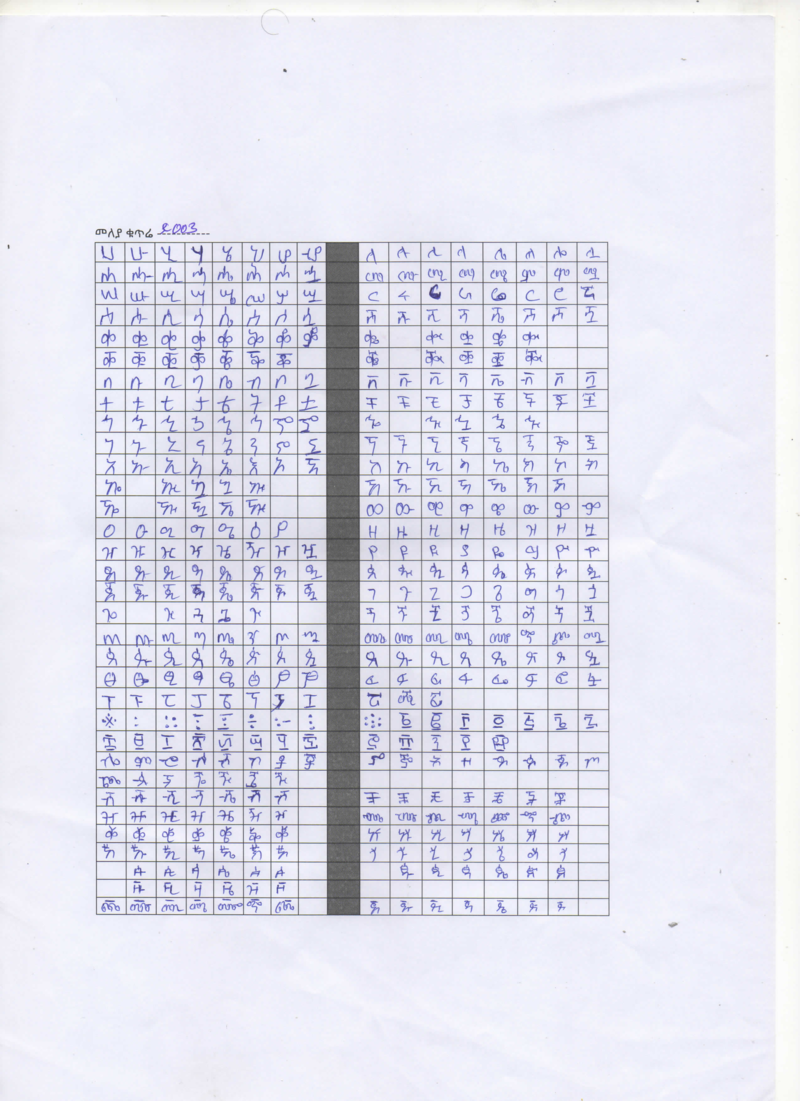 መለያ ቁጥር
ሀ ሁ ሂ ሃ ሄ ህ ሆ ሇ ለ ሉ ሊ ላ ሌ ል ሎ ሏ
ሐ ሑ ሒ ሓ ሔ ሕ ሖ ሗ መ ሙ ሚ ማ ሜ ም ሞ ሟ
ሠ ሡ ሢ ሣ ሤ ሥ ሦ ሧ ረ ሩ ሪ ራ ሬ ር ሮ ሯ
ሰ ሱ ሲ ሳ ሴ ስ ሶ ሷ ሸ ሹ ሺ ሻ ሼ ሽ ሾ ሿ
ቀ ቁ ቂ ቃ ቄ ቅ ቆ ቇ ቈ ቊ ቋ ቌ ቍ
ቐ ቑ ቒ ቓ ቔ ቕ ቖ ቘ ቚ ቛ ቜ ቝ
በ ቡ ቢ ባ ቤ ብ ቦ ቧ ቨ ቩ ቪ ቫ ቬ ቭ ቮ ቯ
ተ ቱ ቲ ታ ቴ ት ቶ ቷ ቸ ቹ ቺ ቻ ቼ ች ቾ ቿ
ኀ ኁ ኂ ኃ ኄ ኅ ኆ ኇ ኈ ኊ ኋ ኌ ኍ
ነ ኑ ኒ ና ኔ ን ኖ ኗ ኘ ኙ ኚ ኛ ኜ ኝ ኞ ኟ
አ ኡ ኢ ኣ ኤ እ ኦ ኧ ከ ኩ ኪ ካ ኬ ክ ኮ ኯ
ኰ ኲ ኳ ኴ ኵ ኸ ኹ ኺ ኻ ኼ ኽ ኾ
ዀ ዂ ዃ ዄ ዅ ወ ዉ ዊ ዋ ዌ ው ዎ ዏ
ዐ ዑ ዒ ዓ ዔ ዕ ዖ ዘ ዙ ዚ ዛ ዜ ዝ ዞ ዟ
ዠ ዡ ዢ ዣ ዤ ዥ ዦ ዧ የ ዩ ዪ ያ ዬ ይ ዮ ዯ
ደ ዱ ዲ ዳ ዴ ድ ዶ ዷ ዸ ዹ ዺ ዻ ዼ ዽ ዾ ዿ
ጀ ጁ ጂ ጃ ጄ ጅ ጆ ጇ ገ ጉ ጊ ጋ ጌ ግ ጎ ጏ
ጐ ጒ ጓ ጔ ጕ ጘ ጙ ጚ ጛ ጜ ጝ ጞ ጟ
ጠ ጡ ጢ ጣ ጤ ጥ ጦ ጧ ጨ ጩ ጪ ጫ ጬ ጭ ጮ ጯ
ጰ ጱ ጲ ጳ ጴ ጵ ጶ ጷ ጸ ጹ ጺ ጻ ጼ ጽ ጾ ጿ
ፀ ፁ ፂ ፃ ፄ ፅ ፆ ፇ ፈ ፉ ፊ ፋ ፌ ፍ ፎ ፏ
ፐ ፑ ፒ ፓ ፔ ፕ ፖ ፗ ፘ ፙ ፚ
፠ ፡ ። ፣ ፤ ፥ ፦ ፧ ፨ ፩ ፪ ፫ ፬ ፭ ፮ ፯
፰ ፱ ፲ ፳ ፴ ፵ ፶ ፷ ፸ ፹ ፺ ፻ ፼
ⶀ ⶁ ⶂ ⶃ ⶄ ⶅ ⶆ ⶇ ⶈ ⶉ ⶊ ⶋ ⶌ ⶍ ⶎ ⶏ
ⶐ ⶑ ⶒ ⶓ ⶔ ⶕ ⶖ
ⶠ ⶡ ⶢ ⶣ ⶤ ⶥ ⶦ ⶨ ⶩ ⶪ ⶫ ⶬ ⶭ ⶮ
ⶰ ⶱ ⶲ ⶳ ⶴ ⶵ ⶶ ⶸ ⶹ ⶺ ⶻ ⶼ ⶽ ⶾ
ⷀ ⷁ ⷂ ⷃ ⷄ ⷅ ⷆ ⷈ ⷉ ⷊ ⷋ ⷌ ⷍ ⷎ
ⷐ ⷑ ⷒ ⷓ ⷔ ⷕ ⷖ ⷘ ⷙ ⷚ ⷛ ⷜ ⷝ ⷞ
ꬁ ꬂ ꬃ ꬄ ꬅ ꬆ ꬉ ꬊ ꬋ ꬌ ꬍ ꬎ
ꬑ ꬒ ꬓ ꬔ ꬕ ꬖ
ꬠ ꬡ ꬢ ꬣ ꬤ ꬥ ꬦ ꬨ ꬩ ꬪ ꬫ ꬬ ꬭ ꬮ